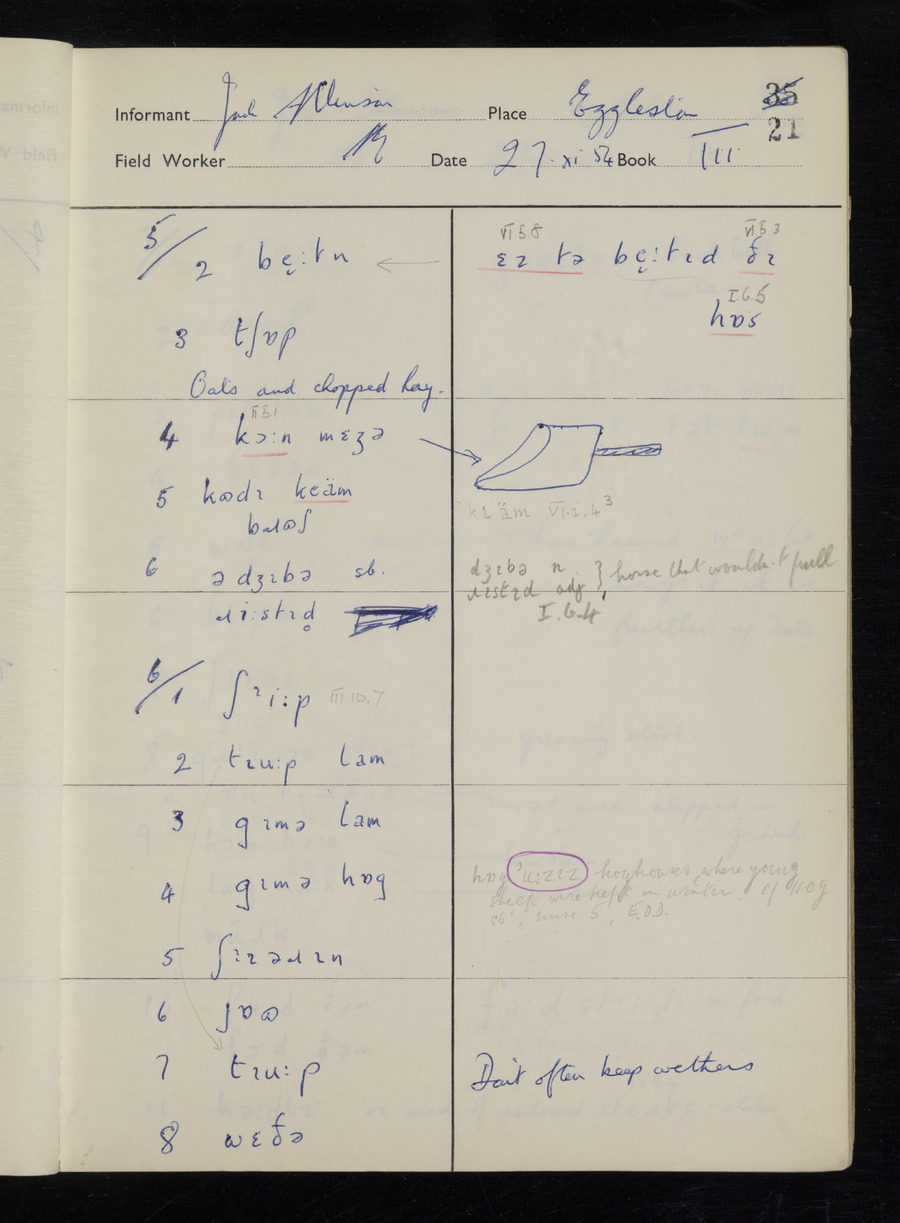 35
21
Informant Place Eggleston
Field Worker Date 27. xi 54 Book III
5/2 bẹ:tn ← VI 5.8 VI 5 3
ɛɪ tə bẹ:tɪd ðɪ
I.6.5
hɒs
3 tʃɒp
Oats and chopped hay.
II 5.1
4 kɔ:n mɛʒə
5 kɒdɪ keäm
kɪäm VI.2.4 3
6 ə dʒɪbə sb.
dʒɪbə n. } horse that wouldn't pull
ɹɪstɪd adj
I.6.4
ɹi:stɪd̥
6/1 ʃɪi:p III.10.7
2 tɪu:p lam
3 gɪmə lam
4 gɪmə hɒg
hɒg'u:zɪz hoghouses where young
sheep were kept in winter. cf HOG
sb', sense 5, E.D.D.
5 ʃɪəɹɪn
6 jɒʊ
7 tɪu:p Don't often keep wethers
8 wɛðə